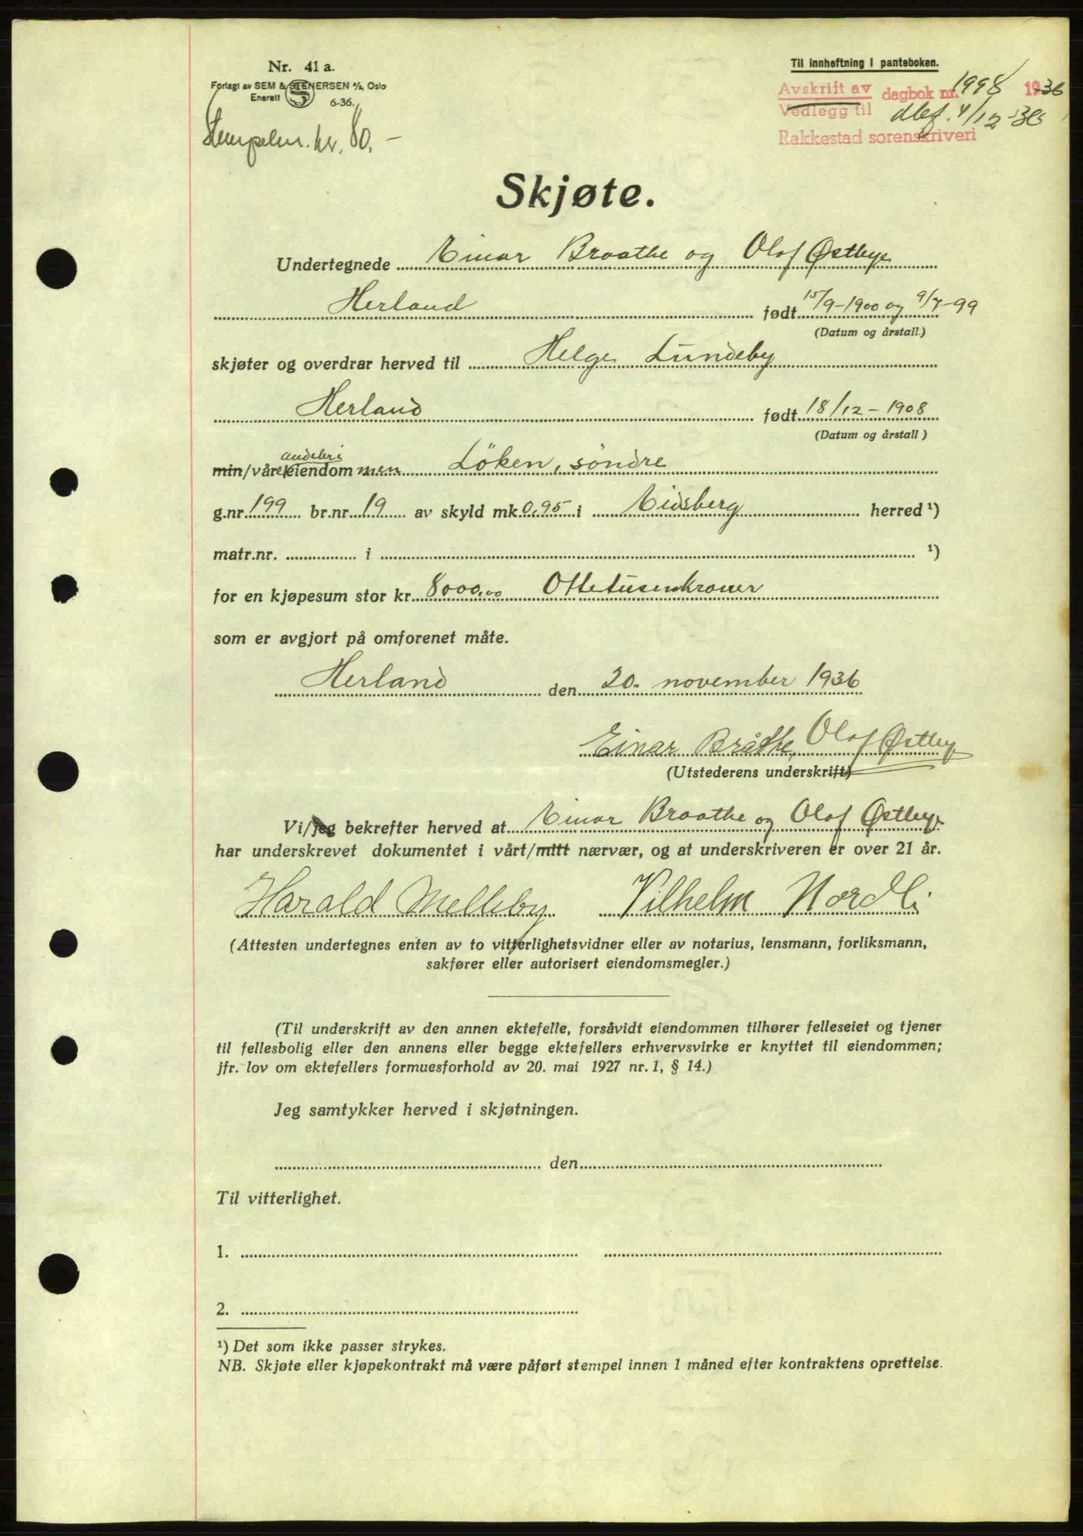 Nr. 41 a.
Forlagt av SEM & STENERSEN A/S, Oslo
Enerett 6-36.
Stempelm. kr. 80.-
Til innheftning i panteboken.
Avskrift av dagbok nr. 1998 1936
Vedlegg til dbf. 4/12-36
Rakkestad sorenskriveri
Skjøte.
Undertegnede Einar Braathe og Olaf Østbye
Herland født 15/9-1900 og 9/7-99
(Datum og årstall.)
skjøter og overdrar herved til Helge Lundeby
Herland født 18/12-1908
(Datum og årstall)
min/våre andeler i eiendommen Løken, søndre
g.nr. 199 br.nr. 19 av skyld mk. 0,95 i Eidsberg herred ¹)
matr.nr. i ¹)
for en kjøpesum stor kr. 8000,00 Ottetusenkroner
som er avgjort på omforenet måte.
Herland den 20. november 1936
Einar Bråthe, Olaf Østbye
(Utstederens underskrift)
Vi/jeg bekrefter herved at Einar Braathe og Olaf Østbye
har underskrevet dokumentet i vårt/mitt nærvær, og at underskriveren er over 21 år.
Harald Melleby Vilhelm Nordli
(Attesten undertegnes enten av to vitterlighetsvidner eller av notarius, lensmann, forliksmann,
sakfører eller autorisert eiendomsmegler.)
(Til underskrift av den annen ektefelle, forsåvidt eiendommen tilhører felleseiet og tjener
til fellesbolig eller den annens eller begge ektefellers erhvervsvirke er knyttet til eiendommen;
jfr. lov om ektefellers formuesforhold av 20. mai 1927 nr. 1, § 14.)
Jeg samtykker herved i skjøtningen.
den
Til vitterlighet.
1.
2.
¹) Det som ikke passer strykes.
NB. Skjøte eller kjøpekontrakt må være påført stempel innen 1 måned efter kontraktens oprettelse.